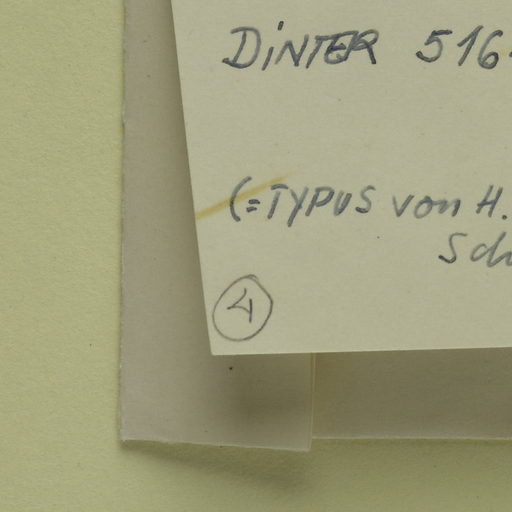 DiNTER 516
(=TYPUS von H.
Sch
4